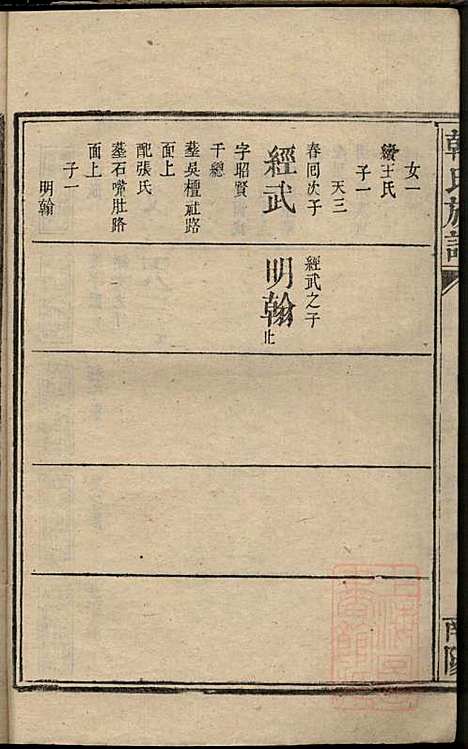 韓氏族譜
南陽
女一
續王氏
子一
天三
春囘次子
經武
字昭賢
千總
塟吳檀社路
面上
配張氏
塟石嘴肚路
面上
子一
明翰
經武之子
明翰止